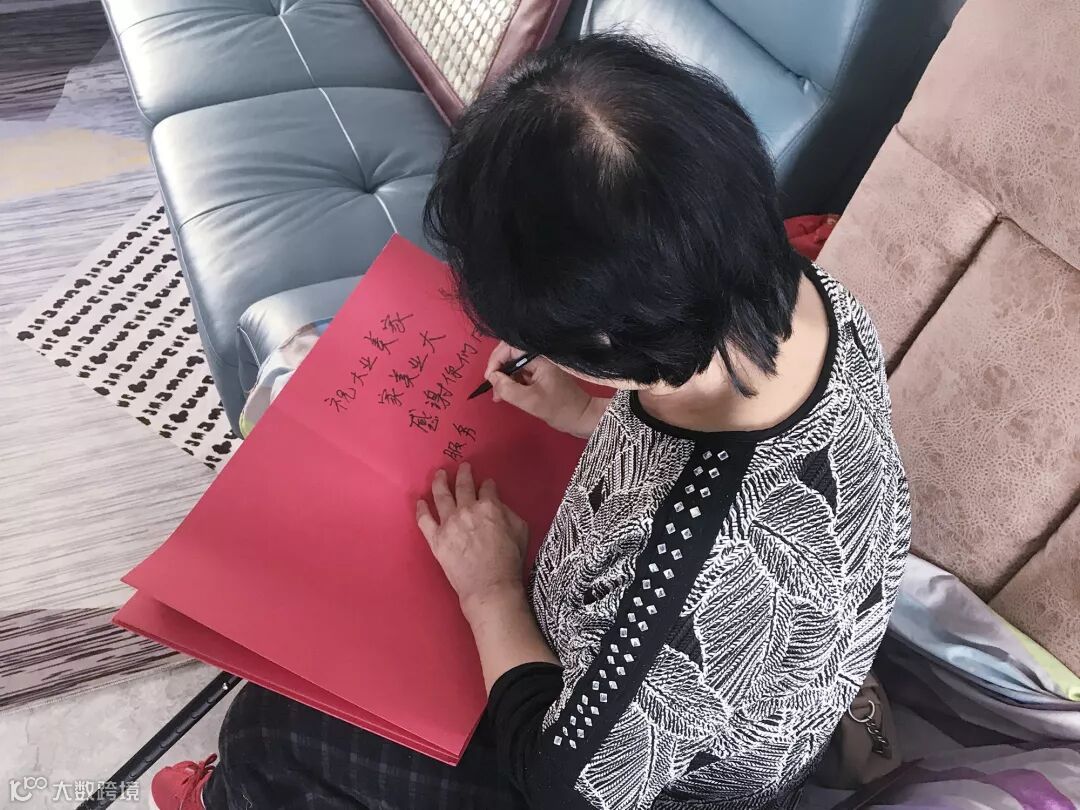 祝大业美家
家美业大
感谢你们
服务
大数跨境